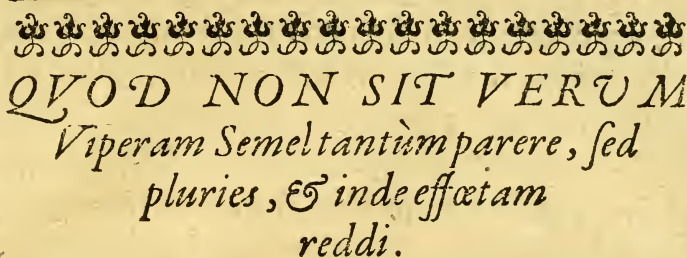 QVOD NON SIT VERUM
Viperam Semel tantùm parere, ſed
pluries, & inde effœtam
reddi.